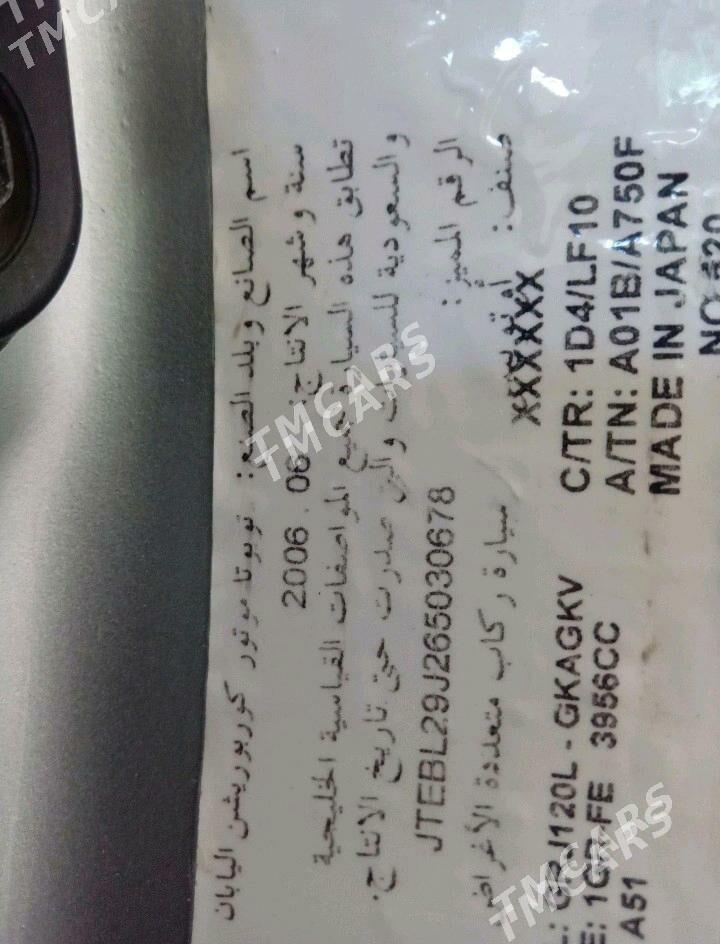 اسم الصانع وبلد الصنع: تويوتا موتور كوربوريشن اليابان
سنة وشهر الانتاج: 2006 . 06
تطابق هذه السيارة جميع المواصفات القياسية الخليجية
والسعودية للسيارات والتي صدرت حتى تاريخ الانتاج.
الرقم المميز: JTEBL29J265030678
صنف: سيارة ركاب متعددة الأغراض
XXXXXX
GRJ120L - GKAGKV C/TR: 1D4/LF10
E: 1GR-FE 3956CC A/TN: A01B/A750F
A51 MADE IN JAPAN
TMCARS
TMCARS
TMCARS
TMCARS
TMCARS
TMCARS